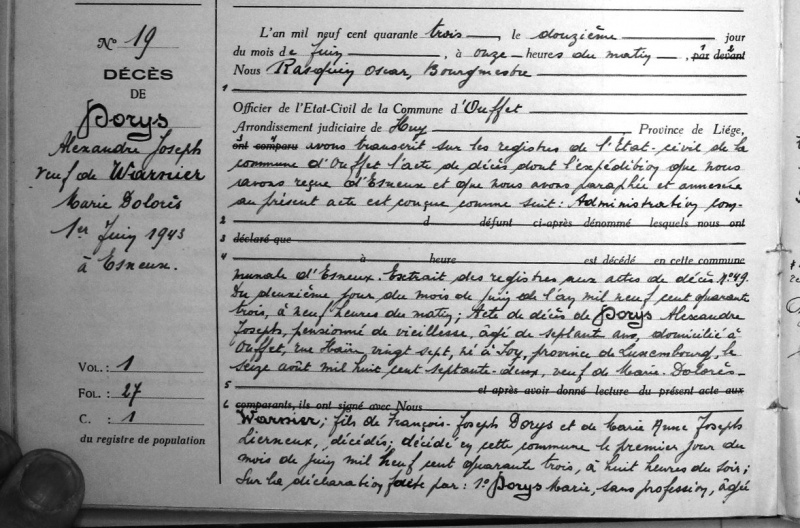 N° 19
DÉCÈS
DE
Dorys
Alexandre Joseph
veuf de Warnier
Marie Dolorès
1er Juin 1943
à Esneux.
VOL. : 1
FOL. : 27
C. : 1
du registre de population
L'an mil neuf cent quarante trois, le douzième jour
du mois de Juin, à onze heures du matin, par devant
Nous Rasquin Oscar, Bourgmestre
1
Officier de l'Etat-Civil de la Commune d'Ouffet
Arrondissement judiciaire de Huy Province de Liége,
ont comparu avons transcrit sur les registres de l'Etat-civil de la
commune d'Ouffet l'acte de décès dont l'expédition que nous
avons reçue d'Esneux et que nous avons paraphée et annexée
au présent acte est conçue comme suit : Administration com-
2 d défunt ci-après dénommé lesquels nous ont
3 déclaré que
4 à heure est décédé en cette commune
munale d'Esneux. Extrait des registres aux actes de décès N°49.
Du deuxième jour du mois de Juin de l'an mil neuf cent quarante
trois, à neuf heures du matin ; Acte de décès de Dorys Alexandre
Joseph, pensionné de vieillesse, âgé de septante ans, domicilié à
Ouffet, rue Haïn, vingt sept, né à Soy, province de Luxembourg, le
seize août mil huit cent septante-deux, veuf de Marie-Dolorès-
5 et après avoir donné lecture du présent acte aux
6 comparants, ils ont signé avec Nous
Warnier ; fils de François-Joseph Dorys et de Marie Anne Joseph
Lierneux, décédés ; décédé en cette commune le premier jour du
mois de Juin mil neuf cent quarante trois, à huit heures du soir ;
Sur la déclaration faite par : 1° Dorys Marie, sans profession, âgée